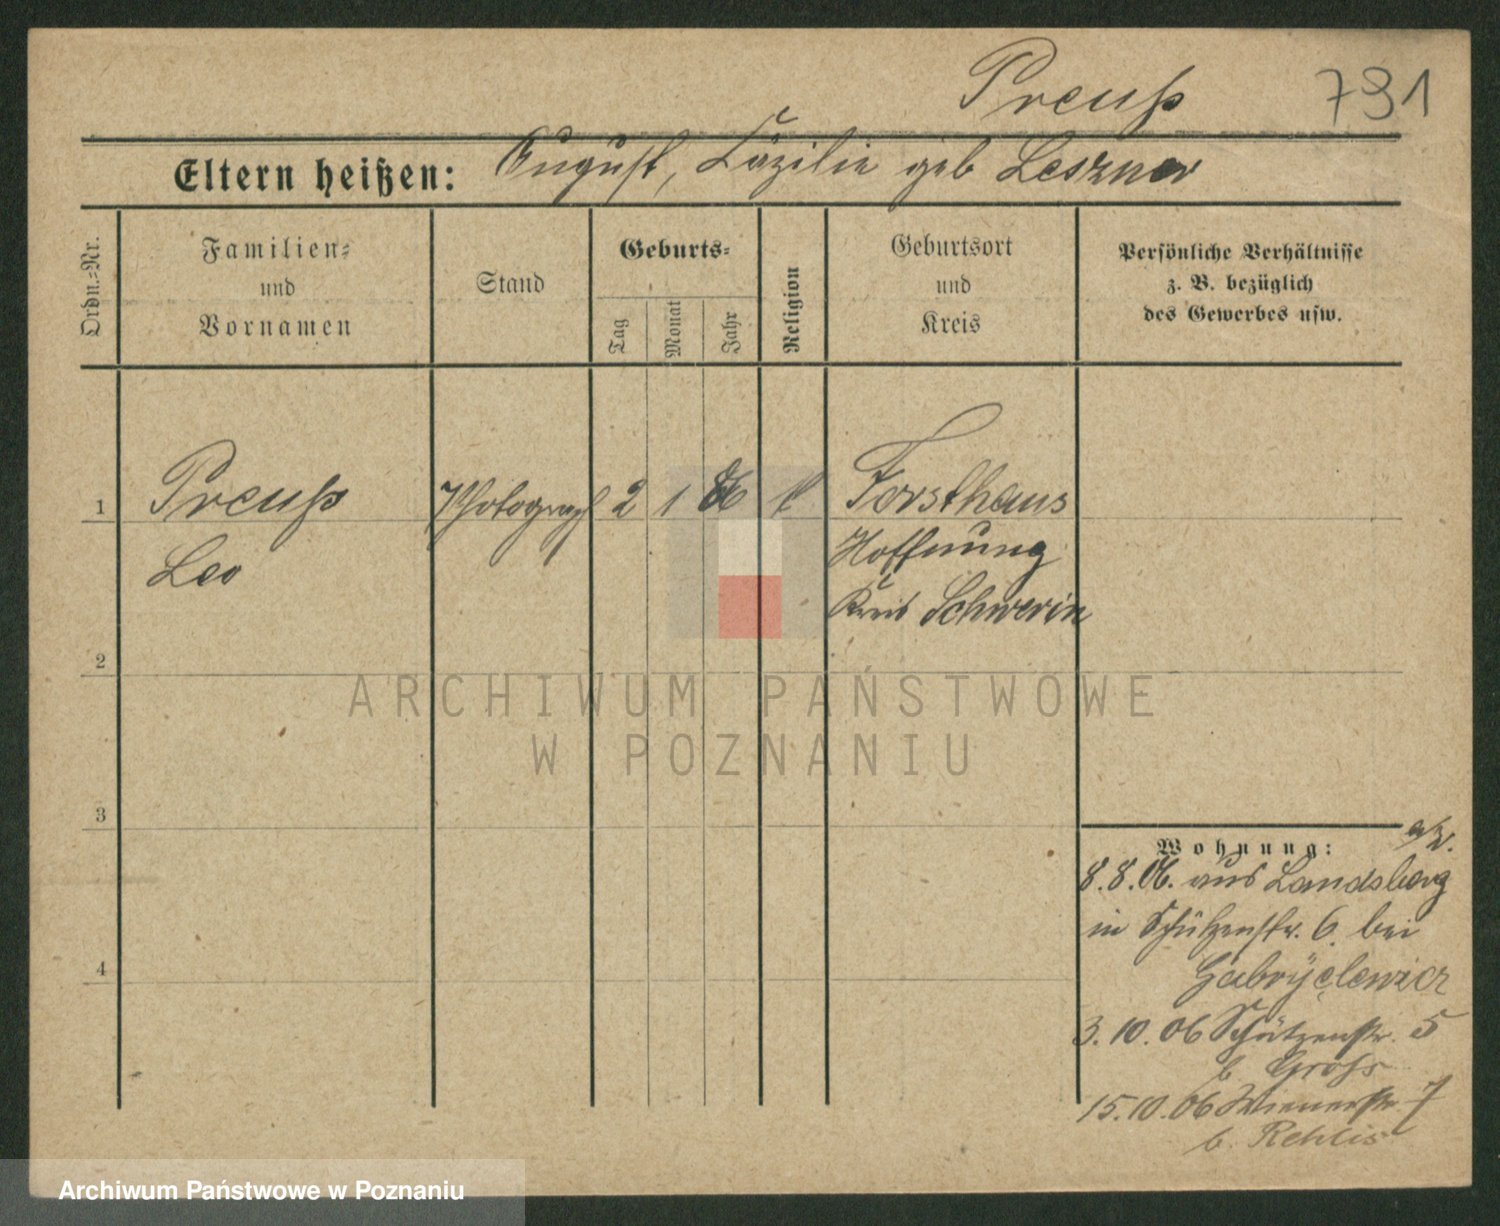 Preuß 791
Eltern heißen: August, Cäzilie geb Leszner
Ordn.=Nr.
Familien=
und
Vornamen
Stand
Geburts=
Tag
Monat
Jahr
Religion
Geburtsort
und
Kreis
Persönliche Verhältnisse
z. B. bezüglich
des Gewerbes usw.
1 Preuß Photograph 2 1 86 k Forsthaus
Leo Hoffnung
Kreis Schwerin
2
ARCHIWUM PAŃSTWOWE
W POZNANIU
3
Wohnung:
8.8.06. aus Landsberg
in Schützenstr. 6 bei
4
3.10.06 Schützenstr. 5
b Gross
15.10.06 Wienerstr 7
b.
Archiwum Państwowe w Poznaniu